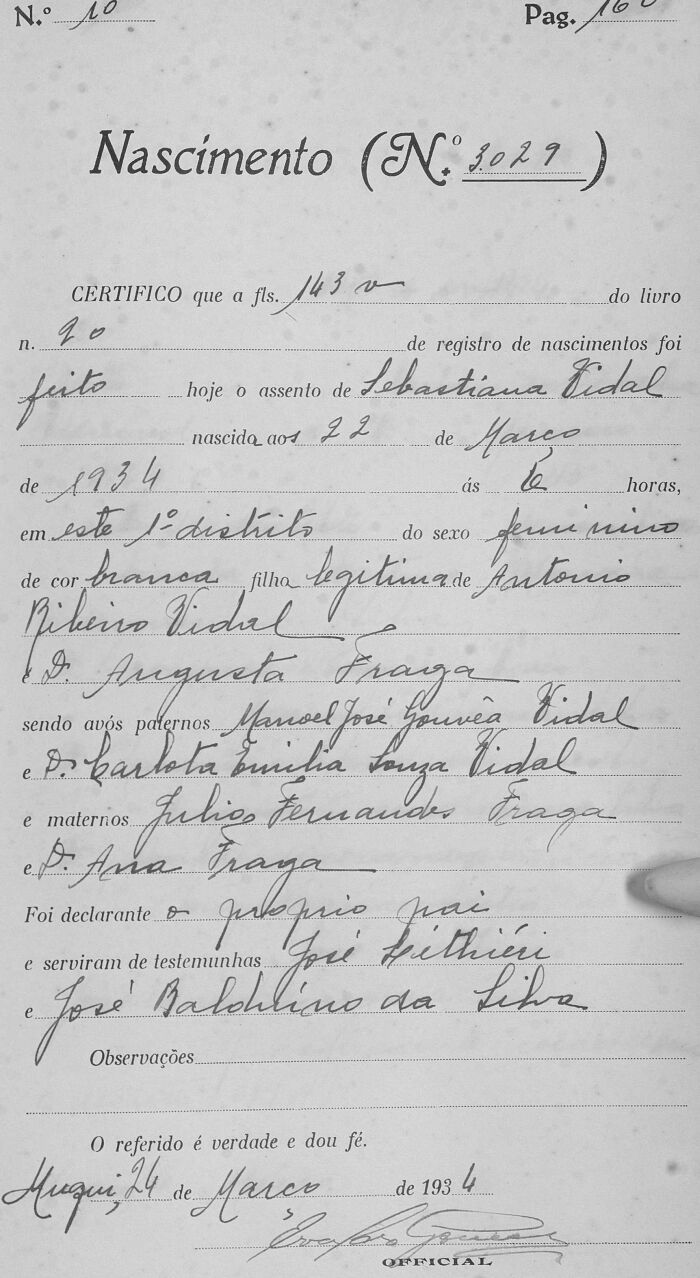 N.º 10 Pag. 160
Nascimento (N.º 3.029)
CERTIFICO que a fls. 143 v do livro
n. 20 de registro de nascimentos foi
feito hoje o assento de Sebastiana Vidal
nascida aos 22 de Março
de 1934 ás 6 horas,
em este 1º distrito do sexo feminino
de cor branca filha legitima de Antonio
Ribeiro Vidal
e D. Augusta Fraga
sendo avós paternos Manoel José Gouvêa Vidal
e D. Carlota Emilia Souza Vidal
e maternos Julio Fernandes Fraga
e D. Ana Fraga
Foi declarante o proprio pai
e serviram de testemunhas José
e José Balduino da Silva
Observações
O referido é verdade e dou fé.
Muqui, 24 de Março de 1934
OFFICIAL